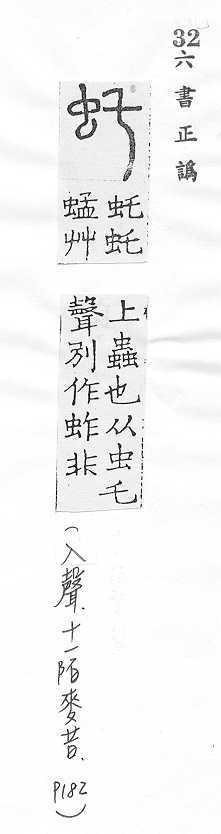 32
六書正譌
虴
虴虴
蜢艸
上蟲也从虫乇
聲別作蚱非
(入聲.十一陌麥昔. P182)